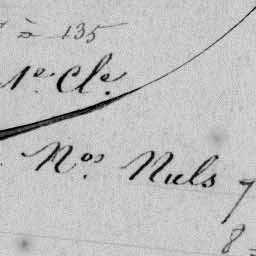 à 135
1e. Cle.
Nos. Nuls 7
8